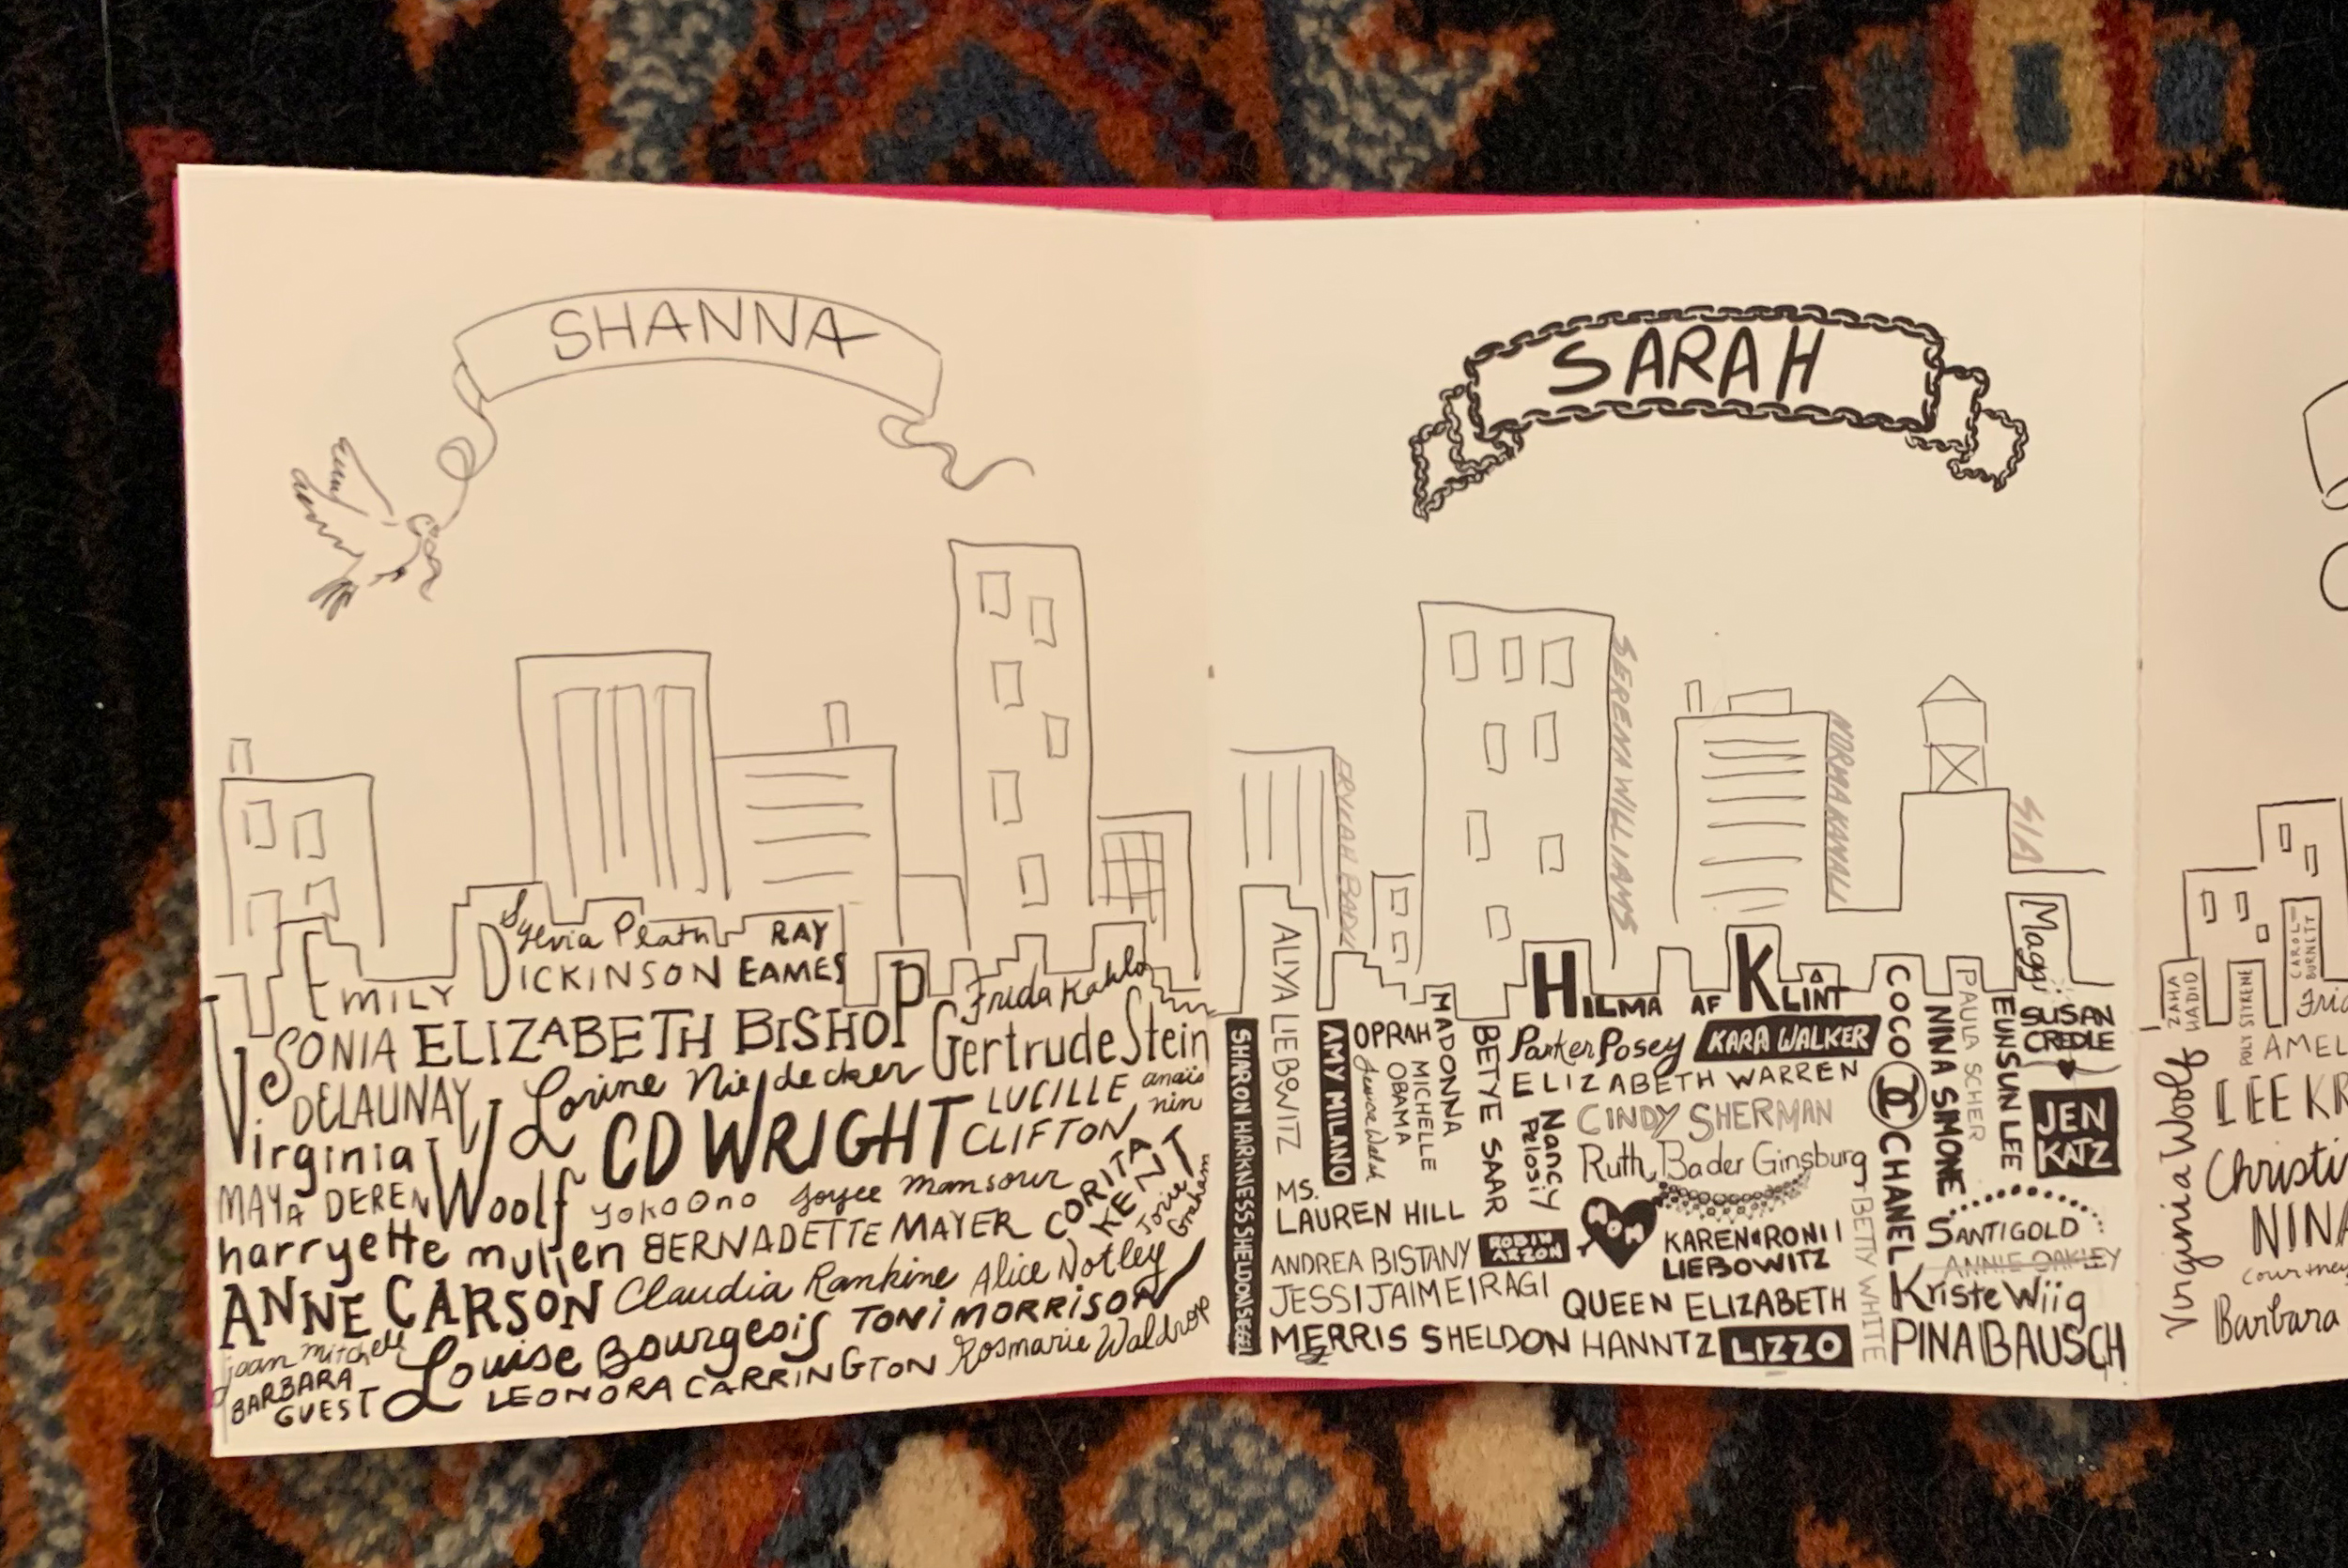 SHANNA
Sylvia Plath
RAY
EAMES
EMILY DICKINSON
Frida Kahlo
SONIA
DELAUNAY
ELIZABETH BISHOP
Gertrude Stein
Lorine Niedecker
LUCILLE
CLIFTON
anaïs
nin
Virginia
Woolf
CD WRIGHT
CORITA
KENT
MAYA DEREN
Yoko Ono
Joyce Mansour
Jorie
Graham
harryette mullen
BERNADETTE MAYER
ANNE CARSON
Claudia Rankine
Alice Notley
joan mitchell
Louise Bourgeois
TONI MORRISON
BARBARA
GUEST
LEONORA CARRINGTON
Rosmarie Waldrop
SARAH
ERYKAH BADU
SERENA WILLIAMS
NORMA KAMALI
SIA
SHARON HARKNESS SHELDON
ALIYA LIEBOWITZ
AMY MILANO
OPRAH
MICHELLE
OBAMA
MADONNA
BETYE SAAR
HILMA AF KLINT
Parker Posey
KARA WALKER
ELIZABETH WARREN
CINDY SHERMAN
Nancy
Pelosiy
Ruth Bader Ginsburg
COCO CHANEL
NINA SIMONE
PAULA SCHER
EUNSUN LEE
Maggi
SUSAN
CREDLE
JEN
KATZ
MS.
LAUREN HILL
ANDREA BISTANY
ROBIN
ARZON
MOM
KAREN & RONI I
LIEBOWITZ
BETTY WHITE
SANTIGOLD
ANNIE OAKLEY
JESSI JAIME IRAGI
QUEEN ELIZABETH
Kriste Wiig
MERRIS SHELDON HANNTZ
LIZZO
PINA BAUSCH
ZAHA
HADID
POLY STYRENE
CAROL
BURNETT
Frid
AMEL
Virginia Woolf
LEE KR
Christi
NINA
Courtney
Barbara